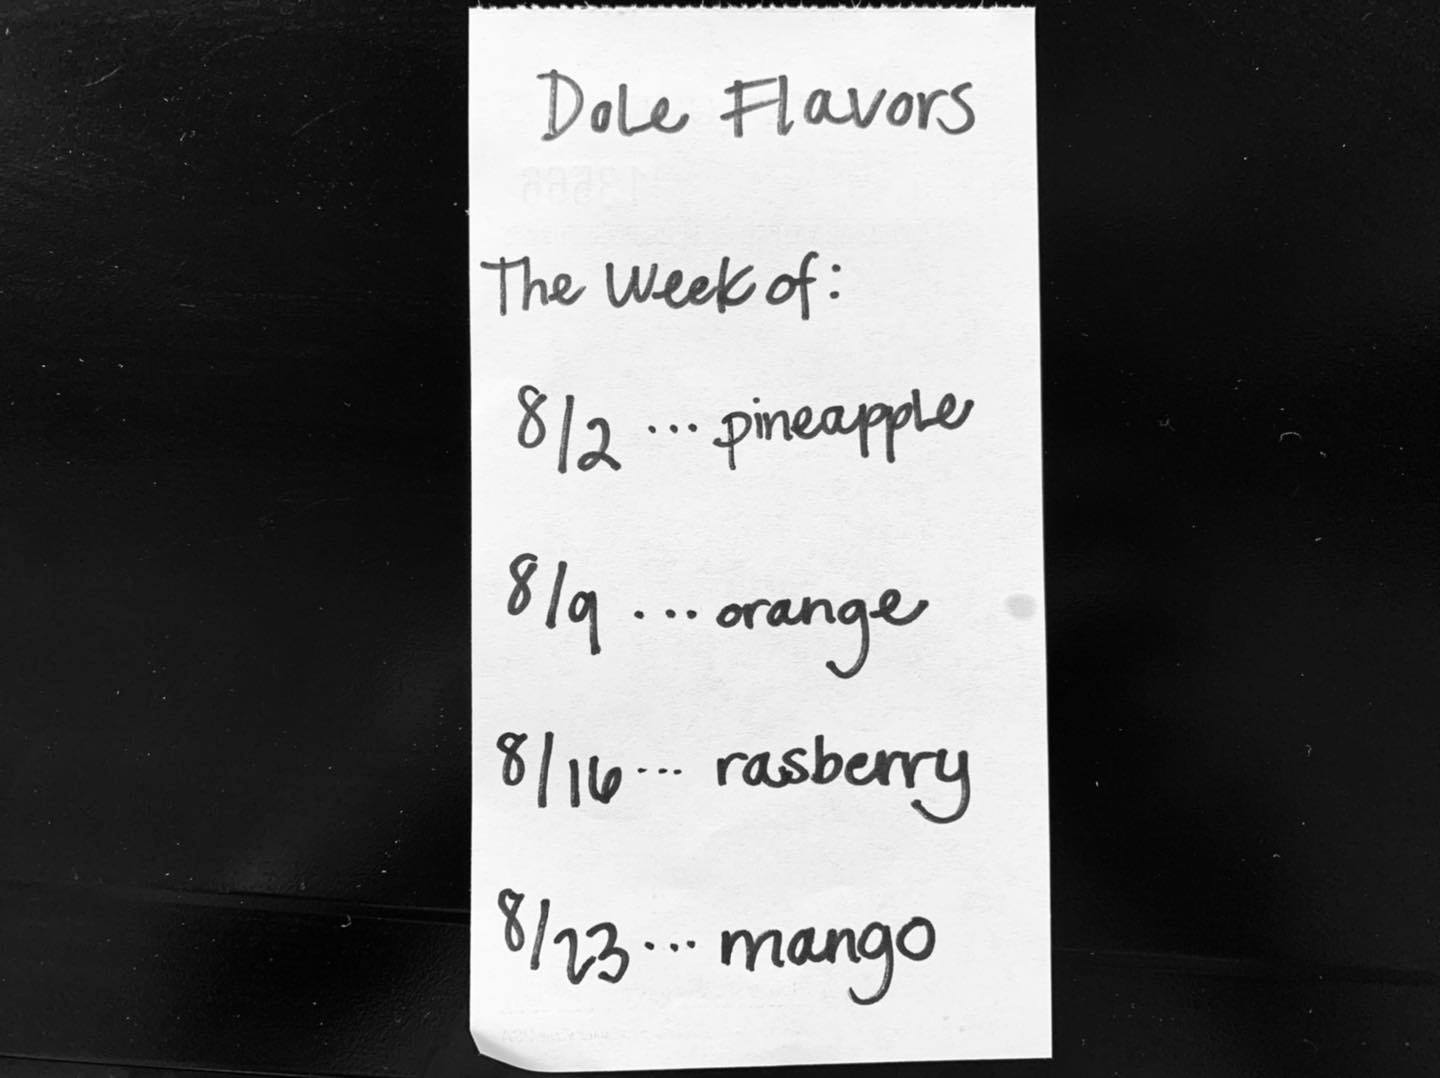 Dole Flavors
The Week of:
8/2 ... pineapple
8/9 ... orange
8/16 ... rasberry
8/23 ... mango